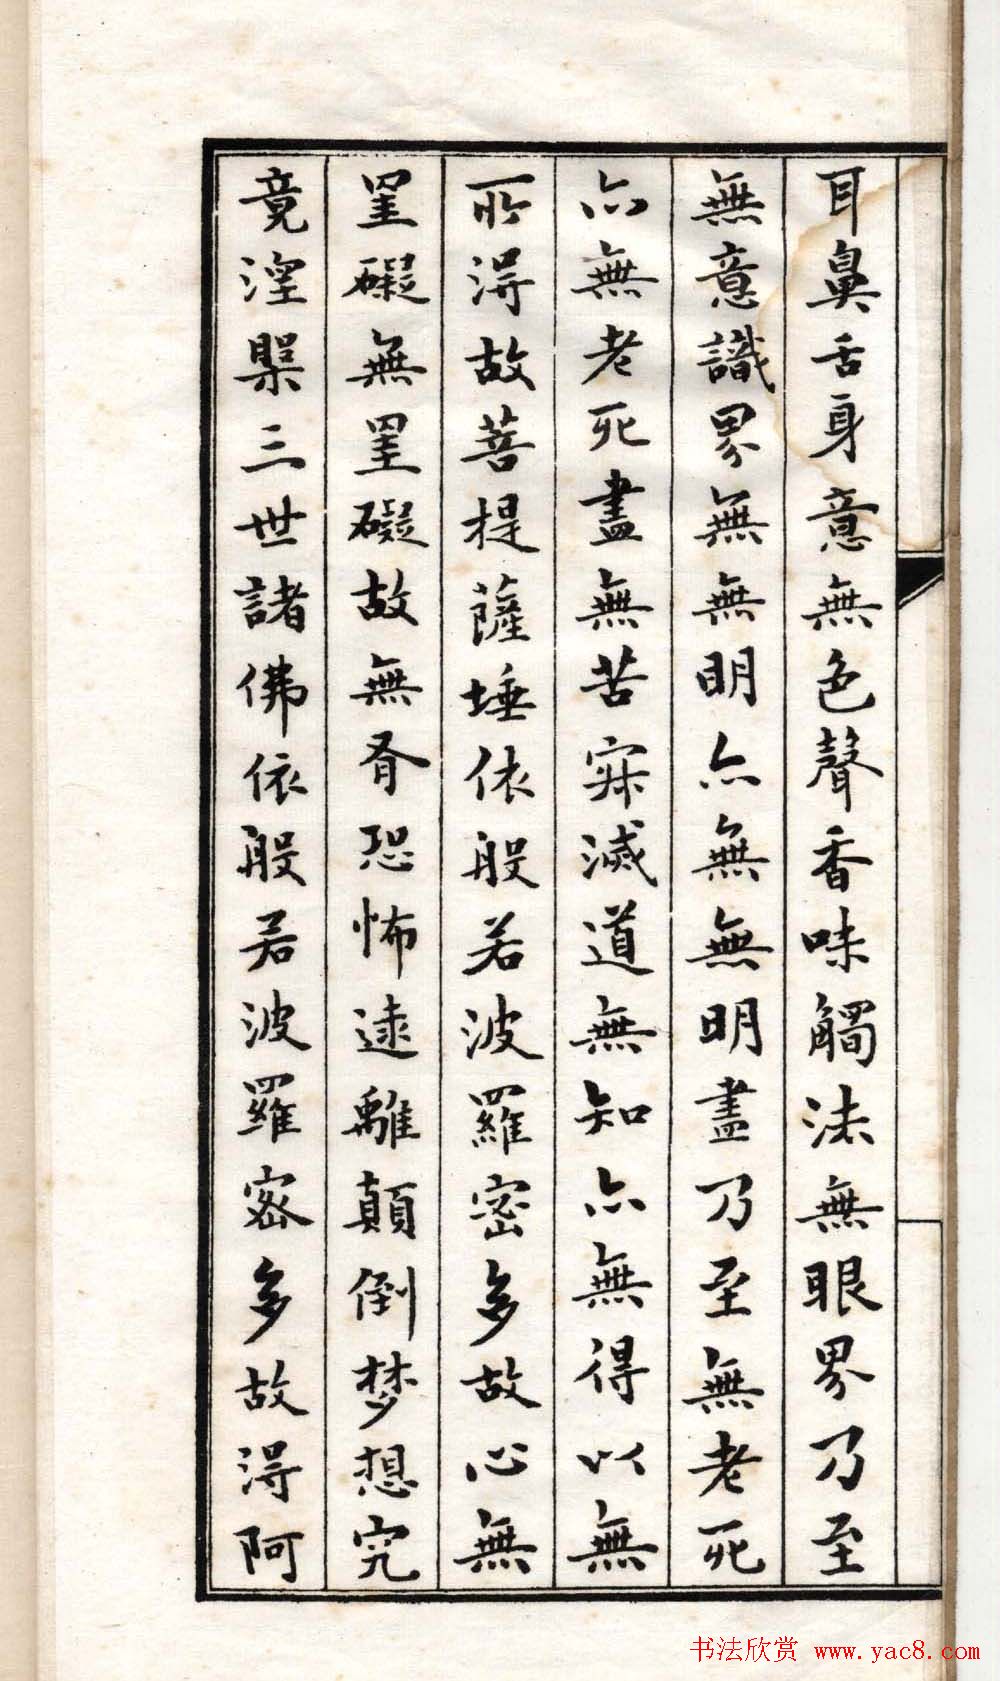 耳鼻舌身意無色聲香味觸法無眼界乃至
無意識界無無明亦無無明盡乃至無老死
亦無老死盡無苦寂滅道無知亦無得以無
所得故菩提薩埵依般若波羅密多故心無
罣礙無罣礙故無有恐怖遠離顛倒梦想究
竟涅槃三世諸佛依般若波羅密多故得阿
书法欣赏 www.yac8.com